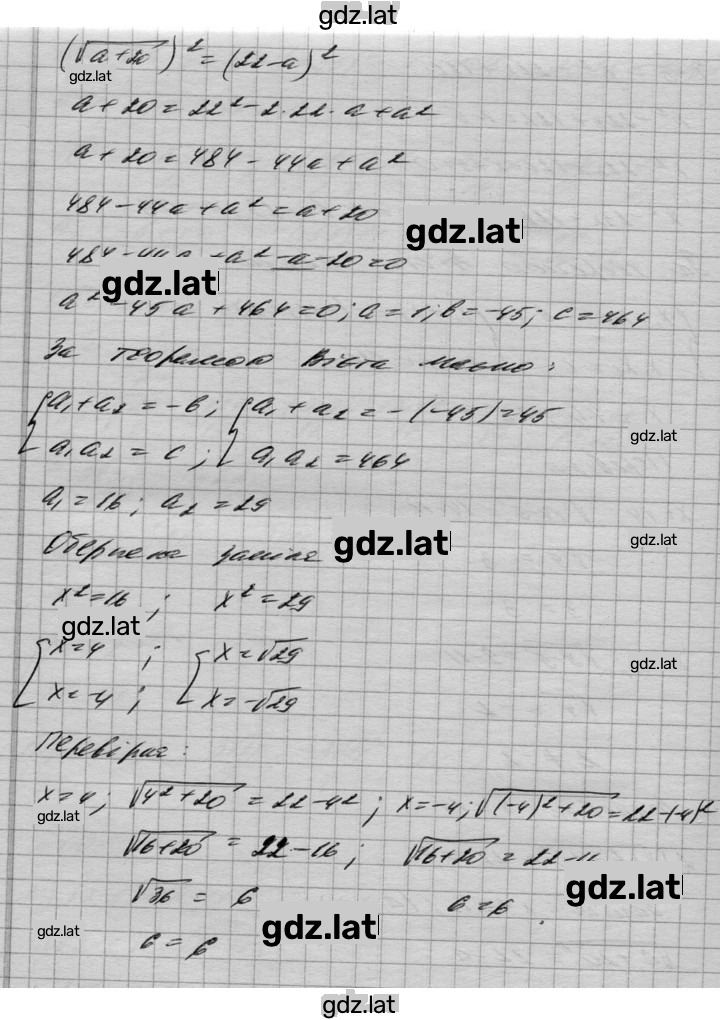 gdz.lat
(√a+20)² = (22-a)²
gdz.lat
a+20=22²-2·22·a+a²
a+20=484-44a+a²
484-44a+a²=a+20
gdz.lat
484-44a+a²-a-20=0
gdz.lat
a²-45a+464=0; a=1; b=-45; c=464
За теоремою Вієта маємо:
{a₁+a₂=-b; {a₁+a₂=-(-45)=45
gdz.lat
a₁a₂=c; a₁a₂=464
a₁=16; a₂=29
Обернена заміна
gdz.lat
gdz.lat
x²=16; x²=29
gdz.lat
[x=4; [x=√29
gdz.lat
x=-4; x=-√29
Перевірка:
x=4; √4²+20=22-4²; x=-4; √(-4)²+20=22-(-4)²
gdz.lat
√16+20=22-16; √16+20=22-
gdz.lat
√36=6 6=6.
gdz.lat
gdz.lat
6=6
gdz.lat